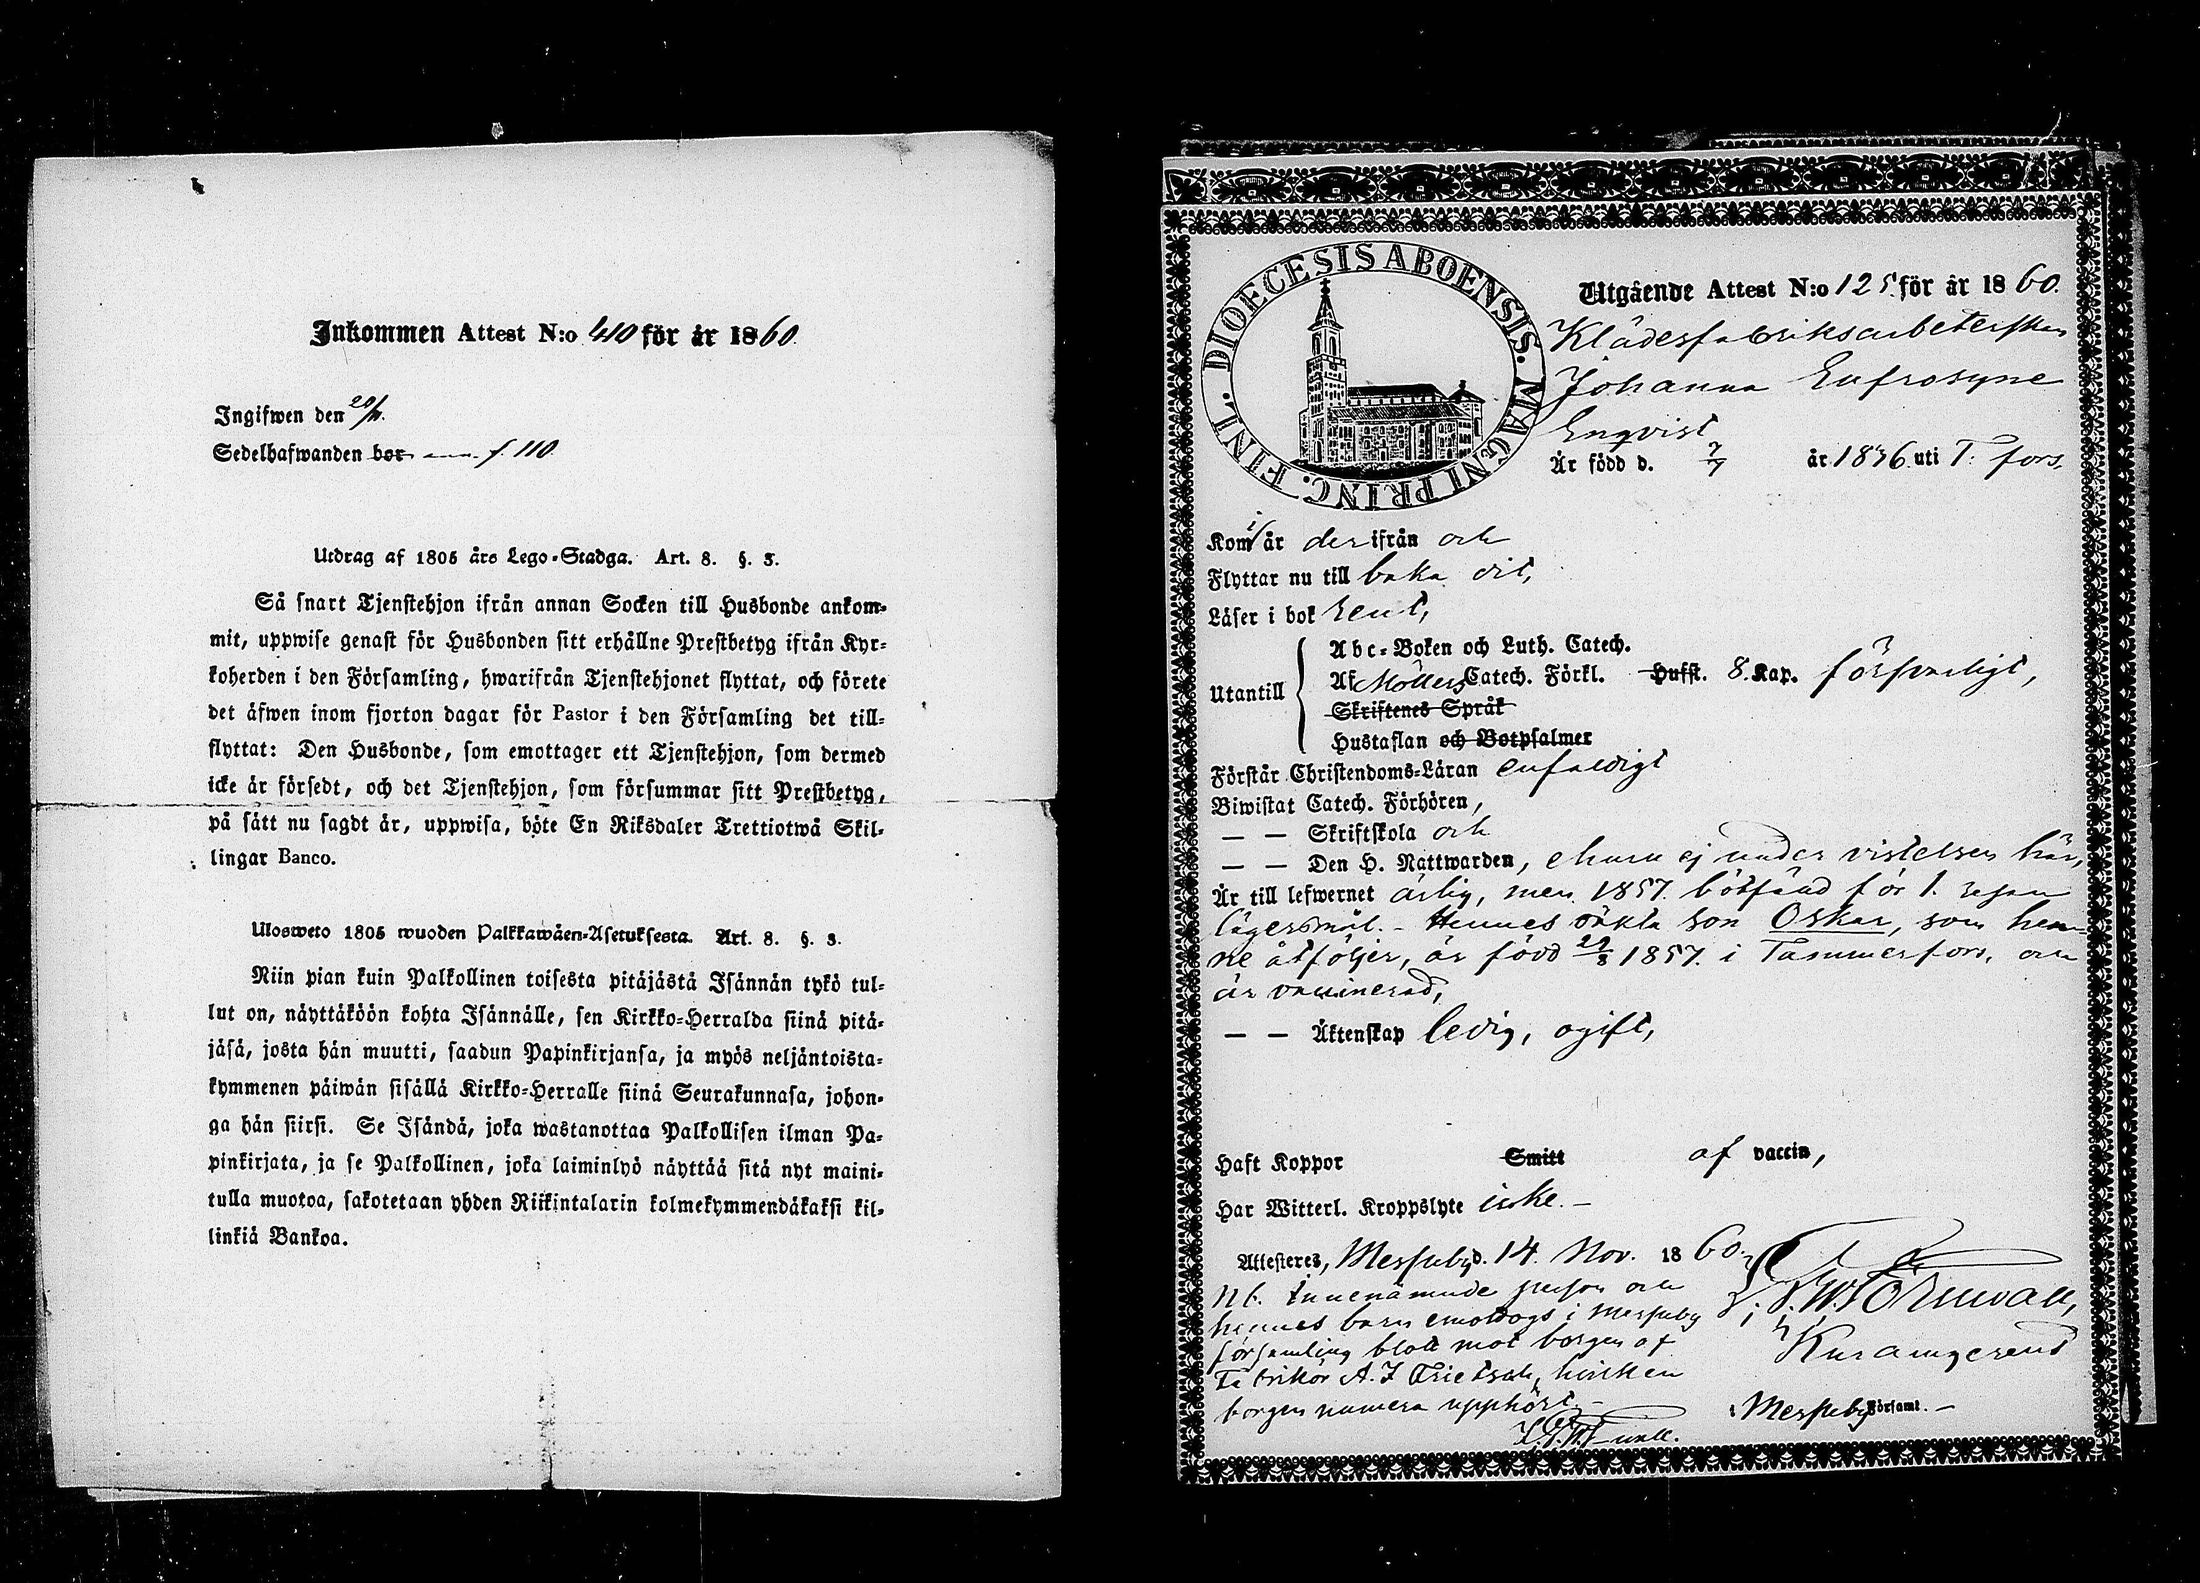 Inkommen Attest N:o 410 för år 1860.
Ingifwen den 20/11.
Sedelhafwanden bor f. 110
Utdrag af 1805 års Lego-Stadga. Art. 8. §. 3.
Så snart Tjenstehjon ifrån annan Socken till Husbonde ankom-
mit, uppwise genast för Husbonden sitt erhållne Prestbetyg ifrån Kyr-
koherden i den Församling, hwarifrån Tjenstehjonet flyttat, och förete
det äfwen inom fjorton dagar för Pastor i den Församling det till-
flyttat: Den Husbonde, som emottager ett Tjenstehjon, som dermed
icke är försedt, och det Tjenstehjon, som försummar sitt Prestbetyg,
på sätt nu sagdt är, uppwisa, böte En Riksdaler Trettiotwå Skil-
lingar Banco.
Ulosweto 1805 wuoden Palkkawäen-Asetuksesta. Art. 8. §. 3.
Niin pian kuin Palkollinen toisesta pitäjästä Isännän tykö tul-
lut on, näyttäköön kohta Isännälle, sen Kirkko-Herralda siinä pitä-
jäsä, josta hän muutti, saadun Papinkirjansa, ja myös neljäntoista-
kymmenen päiwän sisällä Kirkko-Herralle siinä Seurakunnasa, johon-
ga hän siirsi. Se Isändä, joka wastanottaa Palkollisen ilman Pa-
pinkirjata, ja se Palkollinen, joka laiminlyö näyttää sitä nyt maini-
tulla muotoa, sakotetaan yhden Riikintalarin kolmekymmendäkaksi kil-
linkiä Bankoa.
DIOECESIS ABOENSIS. MAGNI PRINC. FINL.
Utgående Attest N:o 125 för år 1860.
Klädesfabriksarbeterskan
Johanna Eufrosyne
Enqvist
Är född d. 7/7 år 1836 uti T. fors.
Kom i år der ifrån och
Flyttar nu till baka dit,
Läser i bok rent,
Utantill
Abc-Boken och Luth. Catech.
Af Möllers Catech. Förkl. Hufst. 8. Kap. försvarligt,
Skriftenes Språk
Hustaflan och Botpsalmer
Förstår Christendoms-Läran enfaldigt
Biwistat Catech. Förhören,
— — Skriftskola och
— — Den H. Nattwarden, ehuru ej under vistelsen här,
Är till lefwernet ärlig, men 1857. bötfäld för 1. resan
lägersmål. - Hennes oäkta son Oskar, som hen-
ne åtföljer, är född 29/8 1857. i Tammerfors, och
är vaccinerad,
— — Äktenskap ledig, ogift,
Haft Koppor Smitt af vaccin,
Har Witterl. Kroppslyte icke. -
Attesteres, Messuby d. 14. Nov. 1860.
Nb. Innenämnde person och
hennes barn emottogs i Messuby
församling blott mot borgen af
Fabrikör A. F Frietsch, hvilken
borgen numera upphört. -
Törnwall,
Kuramgerend
i Messuby Församl. -